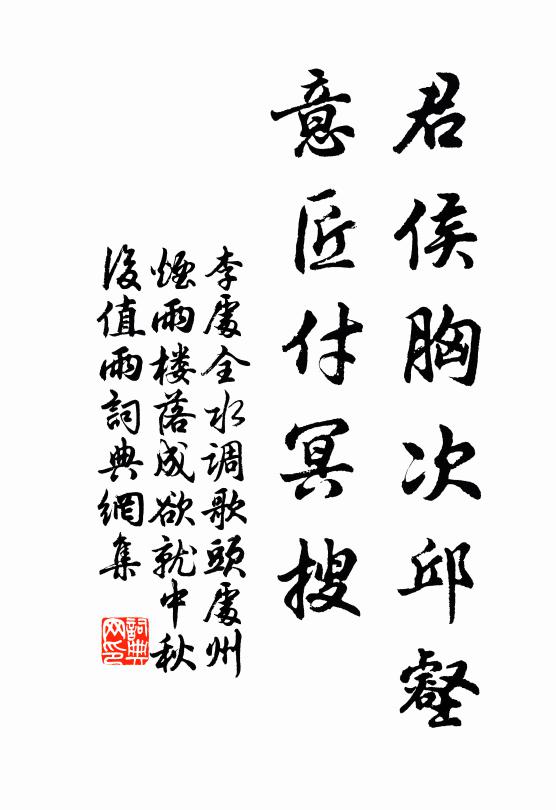 君侯胸次邱壑
意匠付冥搜
李處全水调歌頭處州
煙雨楼落成欲就中秋
後值雨詞典網集
詞典
网印